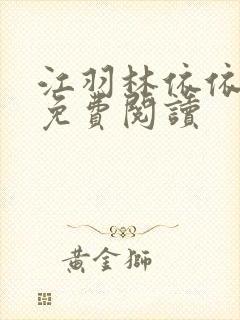 江羽林依依
免費閱讀
黃金獅